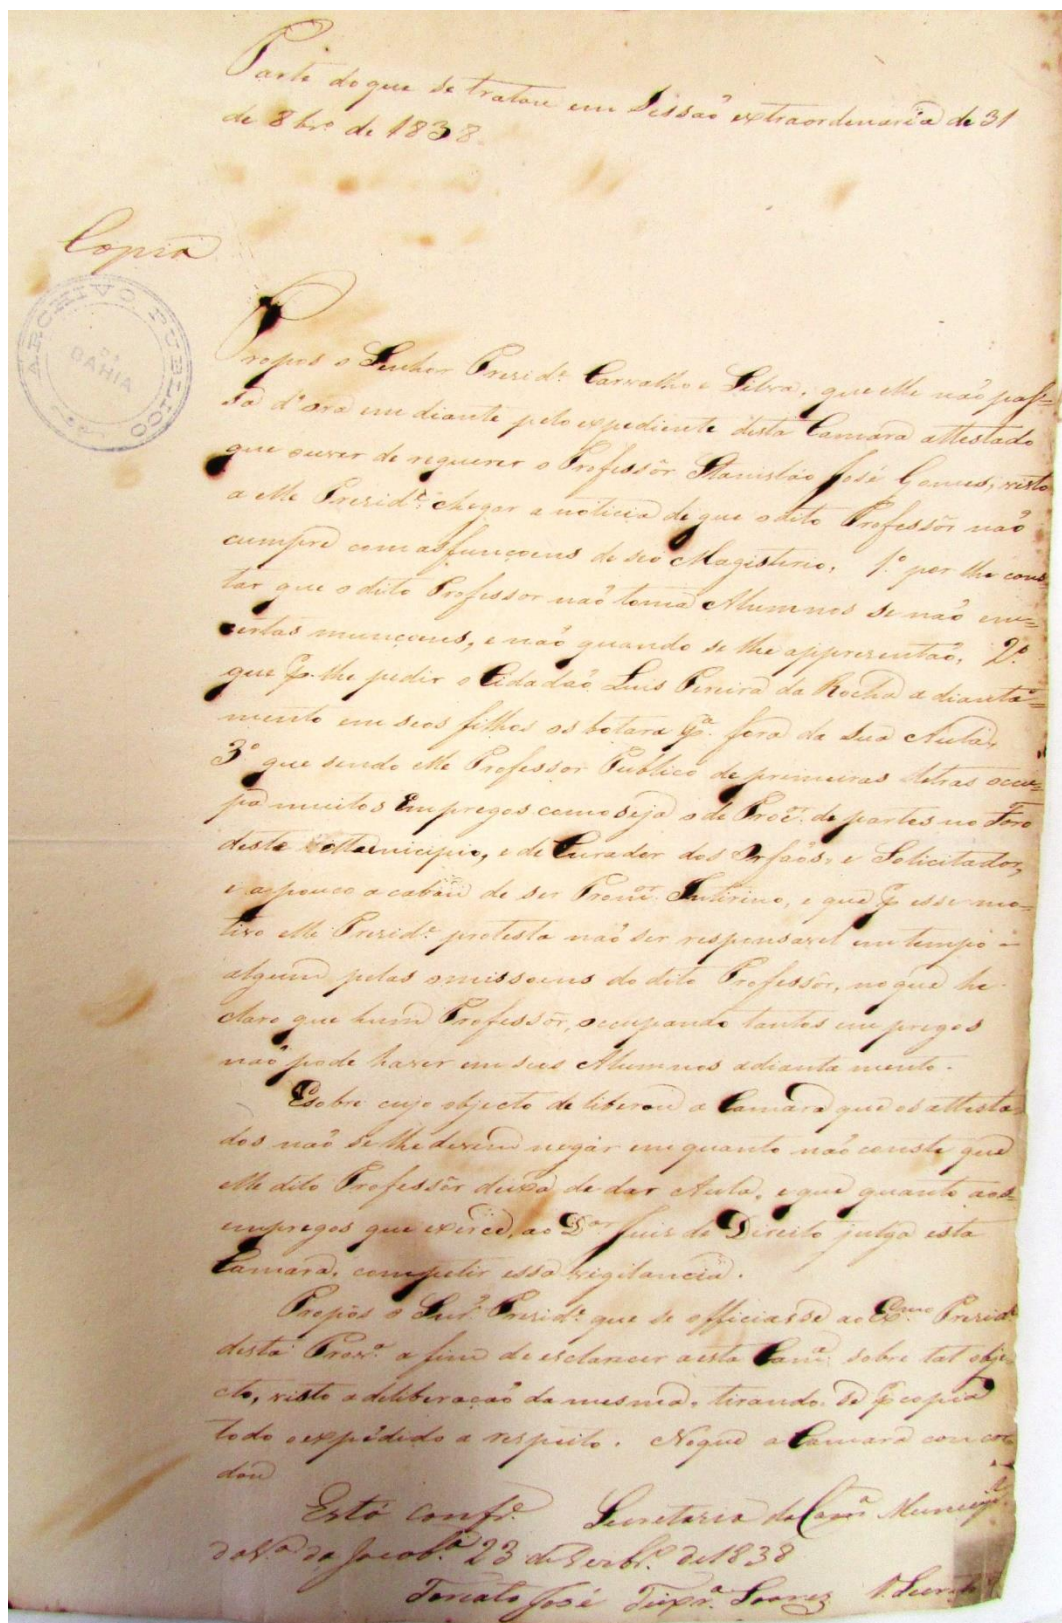 Parte do que se tratou em Sissaõ extraordenaria de 31
de 8brº de 1838.
Copia
ARCHIVO PUBLICO
DA
BAHIA
Propos o Senhor Presidᵉ Carvalho e Silva, que elle naõ pass=
sa d'ora em diante pelo expediente desta Camara attestado
que ouver de requerer o Professõr Stanisláo José Gomes, visto
a elle Presidᵉ chegar a noticia de que o dito Professõr naõ
cumpre com as funçoens do seo Magisterio, 1º por lhe cons-
tar que o dito Professor naõ toma Alumnos se naõ em=
certas munçoens, e naõ quando se lhe appresentaõ, 2º
que p. lhe pedir o Cidadaõ Luis Pereira da Rocha adianta=
mento em seos filhos os botara pª fora da sua Aula,
3º que sendo elle Professor Publico de primeiras Letras occu=
pa muitos Empregos como seja o de Procᵒʳ de partes no Foro
deste Municipio, e de Curador dos Orfaõs, e Solicitador,
e apouco acabou de ser Promᵒʳ Intirino, e que p esse mo=
tivo elle Presidᵉ protesta naõ ser responsavel em tempo
algum pelas omissoens do dito Professõr, no que he
claro que hum Professõr, occupando tantos empregos
naõ pode haver em seus Alumnos adiantamento.
E sobre cujo objecto deliberou a Camara que os attesta-
dos naõ se lhe devem negar em quanto naõ conste que
elle dito Professõr deixa de dar Aula, e que quanto aos=
empregos que exerce, ao Dᵒʳ Juis de Direito julga esta
Camara, competir essa vigilancia.
Propôs o Snrᵒ Presidᵉ que se officiasse ao Exᵐᵒ Presidᵉ
desta Provª a fim de esclarecer a esta Camª sobre tal obje-
cto, visto a deliberaçaõ da mesma, tirando-se p copia
todo o expedido a respeito. No que a Camara concor-
dou
Está confᵉ. Secretaria da Camª Municipᵃˡ
da Vª da Jacobª 23 de 1838
José Teixrª Soares